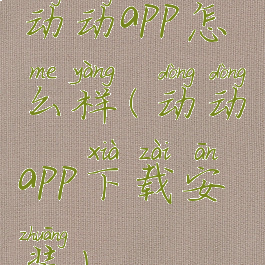 动动app怎
me yàng dòng dòng
么样(动动
xià zài ān
app下载安
zhuāng
装)